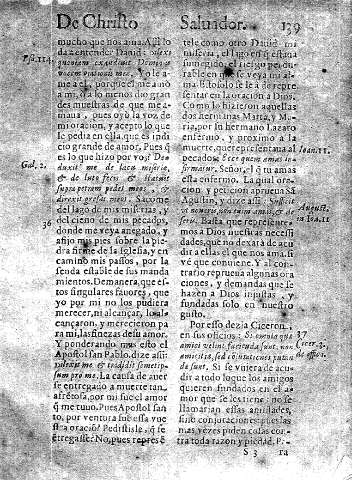 De Christo
Salvador.
139
mucho que nos ama. Assi lo
da a entender David: Dilexi
quoniam exaudiet Dominus
vocem
Psa. 114.
Yo le a-
me a el, porque el me amò
a mi, y a lo menos dio gran
des muestras de que me a-
maua, pues oyò la voz de
mi oracion, y acepto lo que
le pedia en ella, que es indi-
cio grande de amor. Pues q̃
es lo que hizo por vos? De-
duxit me de lacu miseriæ,
Gal. 2.
& de luto fecis, & statuit
supra petram pedes meos, &
direxit gressus meos. Sacome
del lago de mis miserias, y
del cieno de mis pecados,
36
donde me veya anegado, y
afijo mis pies sobre la pie-
dra firme de la Iglesia, y en
camino mis passos, por la
senda estable de sus manda
mientos. De manera, que es-
tos singulares fauores, que
yo por mi no los pudiera
merecer, ni alcançar, lo al-
cançaron, y merecieron pa
ra mi, las finezas de su amor.
Y ponderando mas esto el
Apostol san Pablo, dize assi:
dilexit me & tradidit semetip-
sum pro me. La causa de auer
se entregado a muerte tan
afrētosa, por mi fue el amor
q̃ me tuuo. Pues Apostol san-
to, por ventura fue essa vues
tra oracio? Pedistisle, q̃ se
entregasse? No, pues repres ē
tele como otro David mi
miseria, el lago en q̃ estaua
sumegido, el riesgo peli-
rable en que se veya mi al-
ma. Esto solo se ha de repre-
sentar en la oracion a Dios.
Como lo hizieron aquellas
dos hermanas Marta, y Ma-
ria, por su hermano Lazaro
enfermo, y proximo a la
muerte, que representaua al
Ioan. 11.
pecador: Ecce quem amas in-
firmatur. Señor, el q̃ tu amas
esta enfermo. La qual ora-
cion, y peticion aprueua Sã
Agustin, y dize assi: Sufficit
August.
in Ioa. 11
ut noueris, non enim amas, & de-
seris. Basta que represente-
mos a Dios nuestras necessi
dades, que no dexarà de acu-
dir a ellas el que nos ama, si
vè que conuiene. Y al con-
trario reprueua algunas ora
ciones, y demandas que se
hazen a Dios injustas, y
fundadas solo en nuestro
gusto.
Por esso dezia Ciceron,
37
en sus officios: Si omnia que
Cicer. 3.
de offic.
amici velint facienda sunt, non
amicitiæ, sed coniurationes putan
dæ sunt. Si se vuiera de acu-
dir a todo lo que los amigos
quieren fundados en el a-
mor que se les tiene: no se
llamarian essas amistades,
sino conjuraciones; pues las
mas vezes piden cosas con-
tra toda razon y piedad. Pe-
S 3
ra